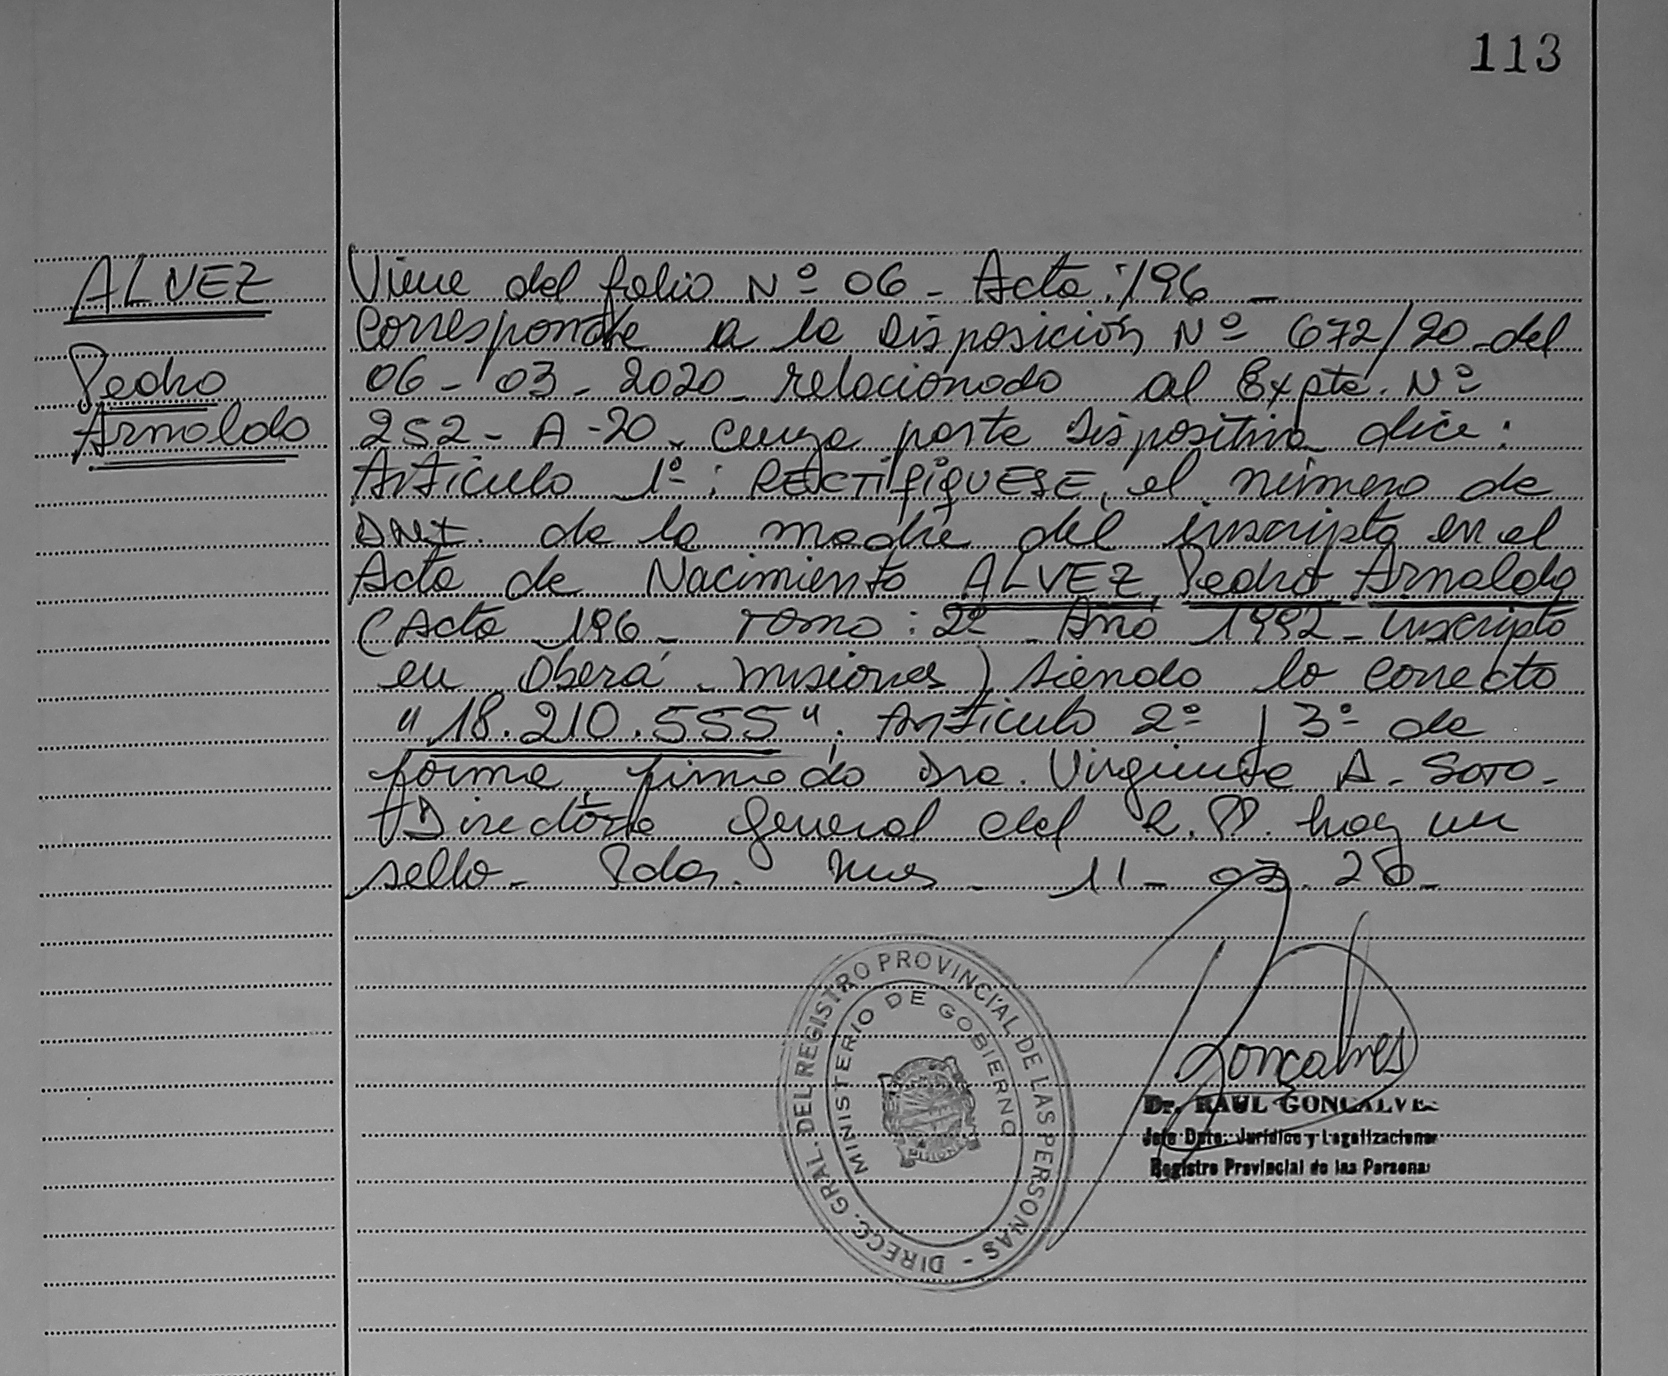 113
ALVEZ
Pedro
Arnoldo
Viene del folio Nº 06 - Acta: 196 -
Corresponde a la Disposición Nº 672/20 del
06-03-2020 relacionado al Expte. Nº
252-A-20. cuya parte dispositiva dice:
Artículo 1º: RECTIFIQUESE, el número de
DNI. de la madre del inscripto en el
Acta de Nacimiento ALVEZ, Pedro Arnoldo
(Acta 196 - Tomo: 2º - Año 1992 - inscripto
en Oberá - Misiones) siendo lo correcto
"18.210.555"; Artículo 2º y 3º de
forma, firmado Dra. Virginia A. Soto -
Directora General del R.P. hay un
sello - Pdas. Mnes - 11-03-20-
DIRECC. GRAL. DEL REGISTRO PROVINCIAL DE LAS PERSONAS -
MINISTERIO DE GOBIERNO
MISIONES
Gonçalves
Dr. RAUL GONCALVES
Jefe Dpto. Jurídico y Legalizaciones
Registro Provincial de las Personas